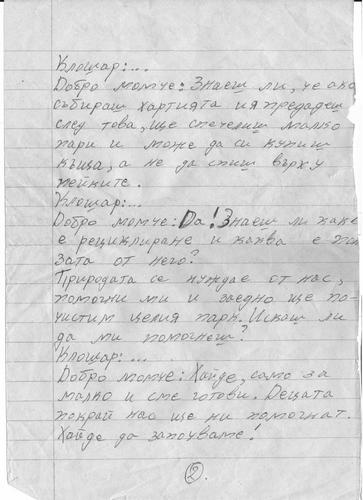 Клошар:...
Добро момче: Знаеш ли, че ако
събираш хартията и я предадеш
след това, ще спечелиш малко
пари и може да си купиш
къща, а не да спиш върху
пейките.
Клошар:...
Добро момче: Да! Знаеш ли какво
е рециклиране и каква е пол
зата от него?
Природата се нуждае от нас,
помогни ми и заедно ще по-
чистим целия парк. Искаш ли
да ми помогнеш?
Клошар:...
Добро момче: Хайде, само за
малко и сме готови. Децата
покрай нас ще ни помогнат.
Хайде да започваме!
2.